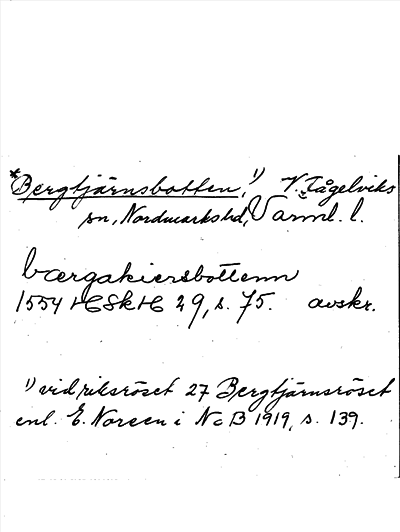 *Bergtjärnsbotten,¹) V. Fågelviks
sn, Nordmarks hd, Värml. l.
bærgakiersbottenn
1554 HSH 29, s. 75. avskr.
¹) vid riksröset 27 Bergtjärnsröset
enl. E. Noreen i NoB 1919, s. 139.